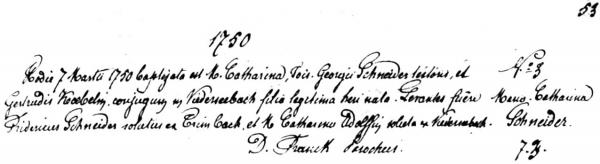 53
1750
Hodie 7 Martii 1750 baptizata est M. Catharina, Jois. Georgii Schneider textoris, et
Gertrudis Koebelin, conjugum ex Niederseebach filia legitima heri nata. Levantes fuere
Fridericus Schneider solutus ex Trimbach, et M. Catharina Adolffin soluta ex Niederseebach.
D. Franck Parochus.
No 3
Maria Catharina
Schneider.
7. 3.